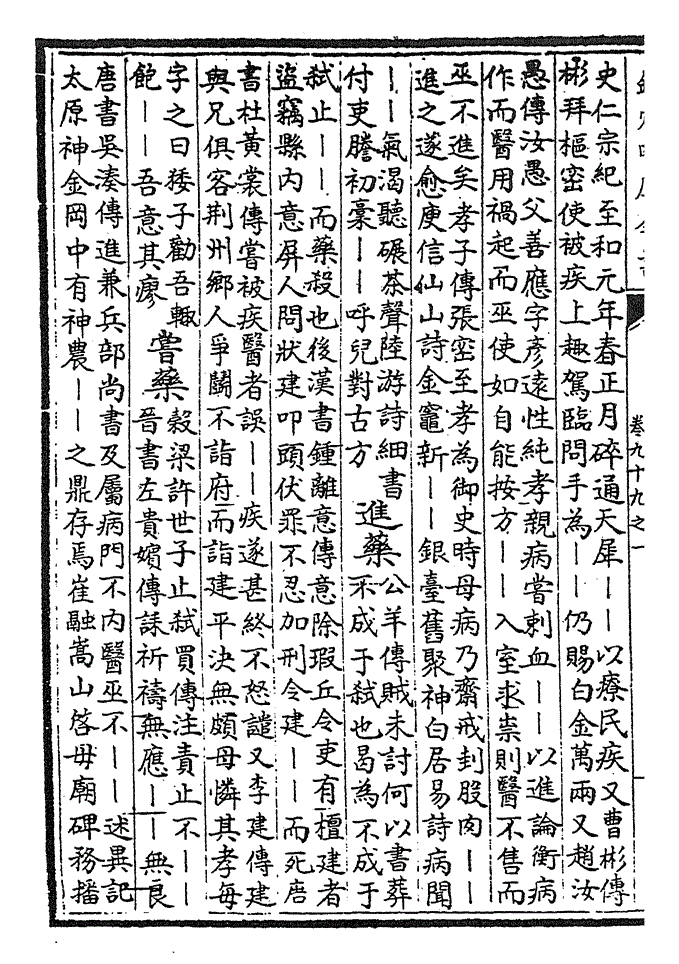 卷九十九之一
史仁宗紀至和元年春正月碎通天犀——以療民疾又曹彬傳
彬拜樞密使被疾上趣駕臨問手為——仍賜白金萬兩又趙汝
愚傳汝愚父善應字彥遠性純孝親病嘗刺血——以進論衡病
作而醫用禍起而巫使如自能按方——入室求祟則醫不售而
巫不進矣孝子傳張密至孝為御史時母病乃齋戒刲股肉——
進之遂愈庾信仙山詩金竈新——銀臺舊聚神白居易詩病聞
——氣渴聽碾茶聲陸游詩細書
付吏謄初稾——呼兒對古方
進藥
公羊傳賊未討何以書葬
不成于弒也曷為不成于
弒止——而藥殺也後漢書鍾離意傳意除瑕丘令吏有檀建者
盜竊縣內意屏人問狀建叩頭伏罪不忍加刑令建——而死唐
書杜黃裳傳嘗被疾醫者誤——疾遂甚終不怒譴又李建傳建
與兄俱客荆州鄉人爭鬭不詣府而詣建平決無頗母憐其孝每
字之曰矮子勸吾輒
飽——吾意其瘳
嘗藥
穀梁許世子止弒買傳注責止不——
晉書左貴嬪傳誄祈禱無應——無良
唐書吳湊傳進兼兵部尚書及屬病門不內醫巫不——述異記
太原神金岡中有神農——之鼎存焉崔融嵩山啓母廟碑務播